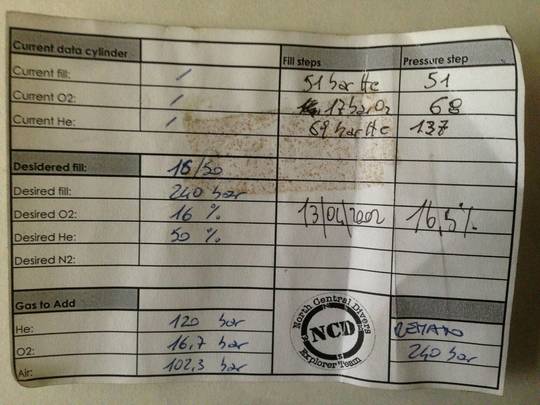 Current data cylinder
Fill steps
Pressure step
Current fill: /
51 bar He
51
Current O2: /
17 bar O2
68
Current He: /
69 bar He
137
Desidered fill:
16/50
Desired fill:
240 bar
Desired O2:
16 %
13/04/2002
16,5%
Desired He:
50 %
Desired N2:
Gas to Add
North Central Divers
NCD
Explorer Team
He:
120 bar
O2:
16,7 bar
240 bar
Air:
102,3 bar